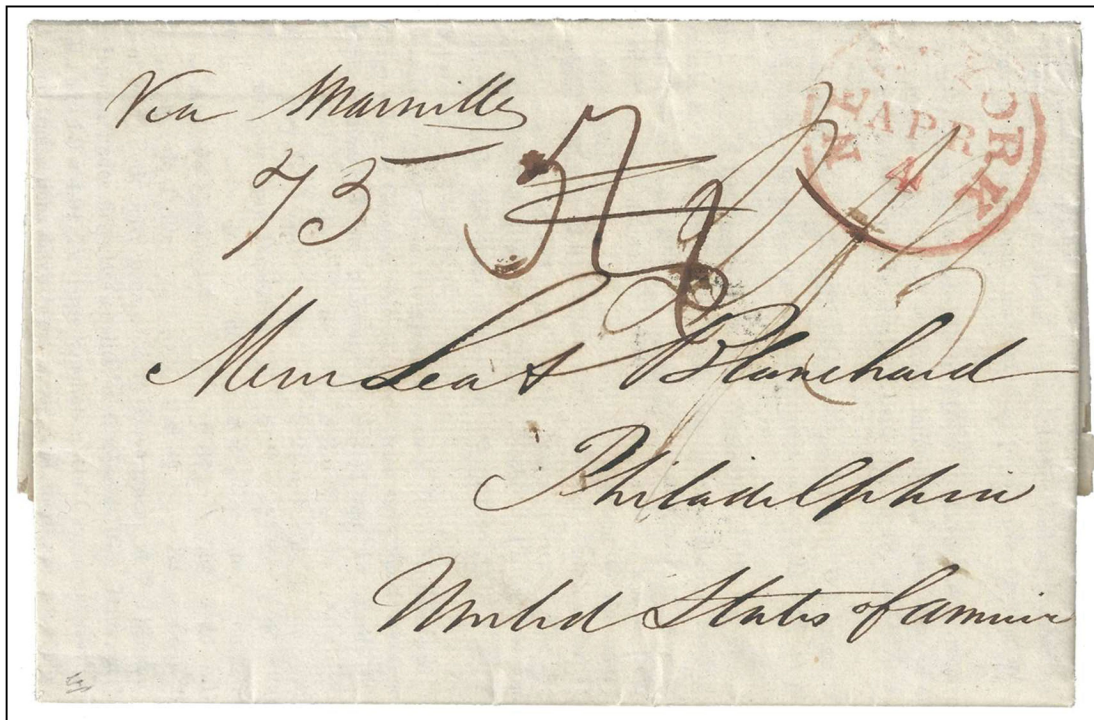 Via Marseille
NEW YORK
APR
4
75
Messrs Lea & Blanchard
Philadelphia
United States of America